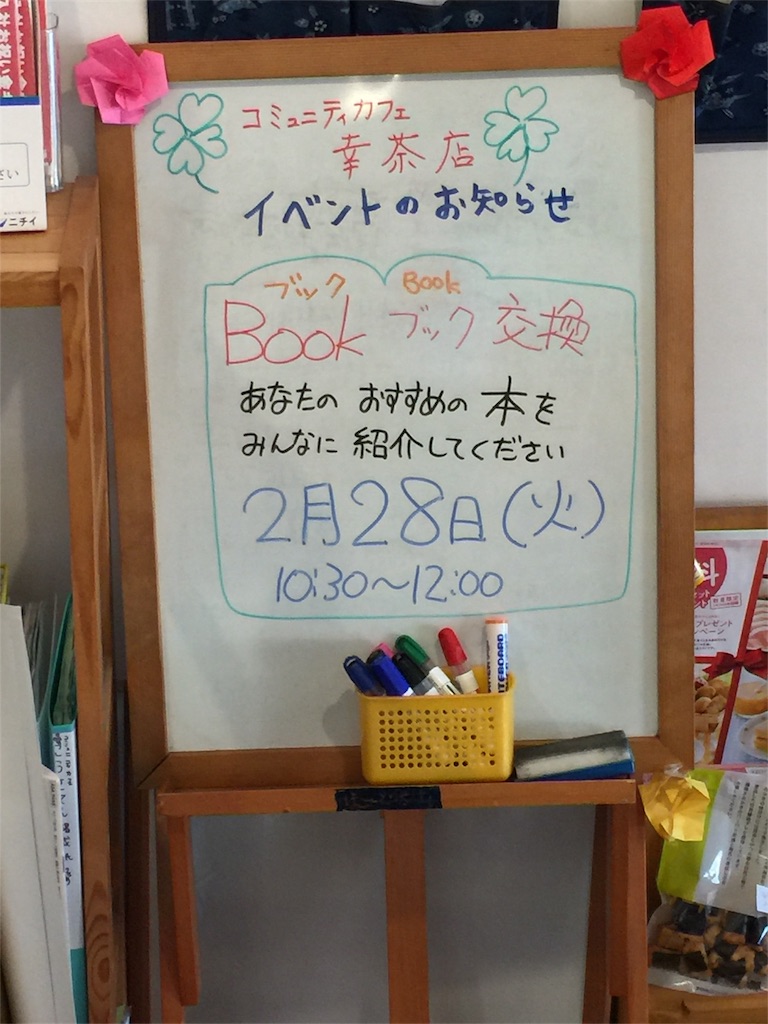 コミュニティカフェ
幸茶店
イベントのお知らせ
ブック Book
Book ブック 交換
あなたの おすすめの 本を
みんなに 紹介してください
2月28日(火)
10:30~12:00
さい
ニチイ
料
プレゼント
ペーン